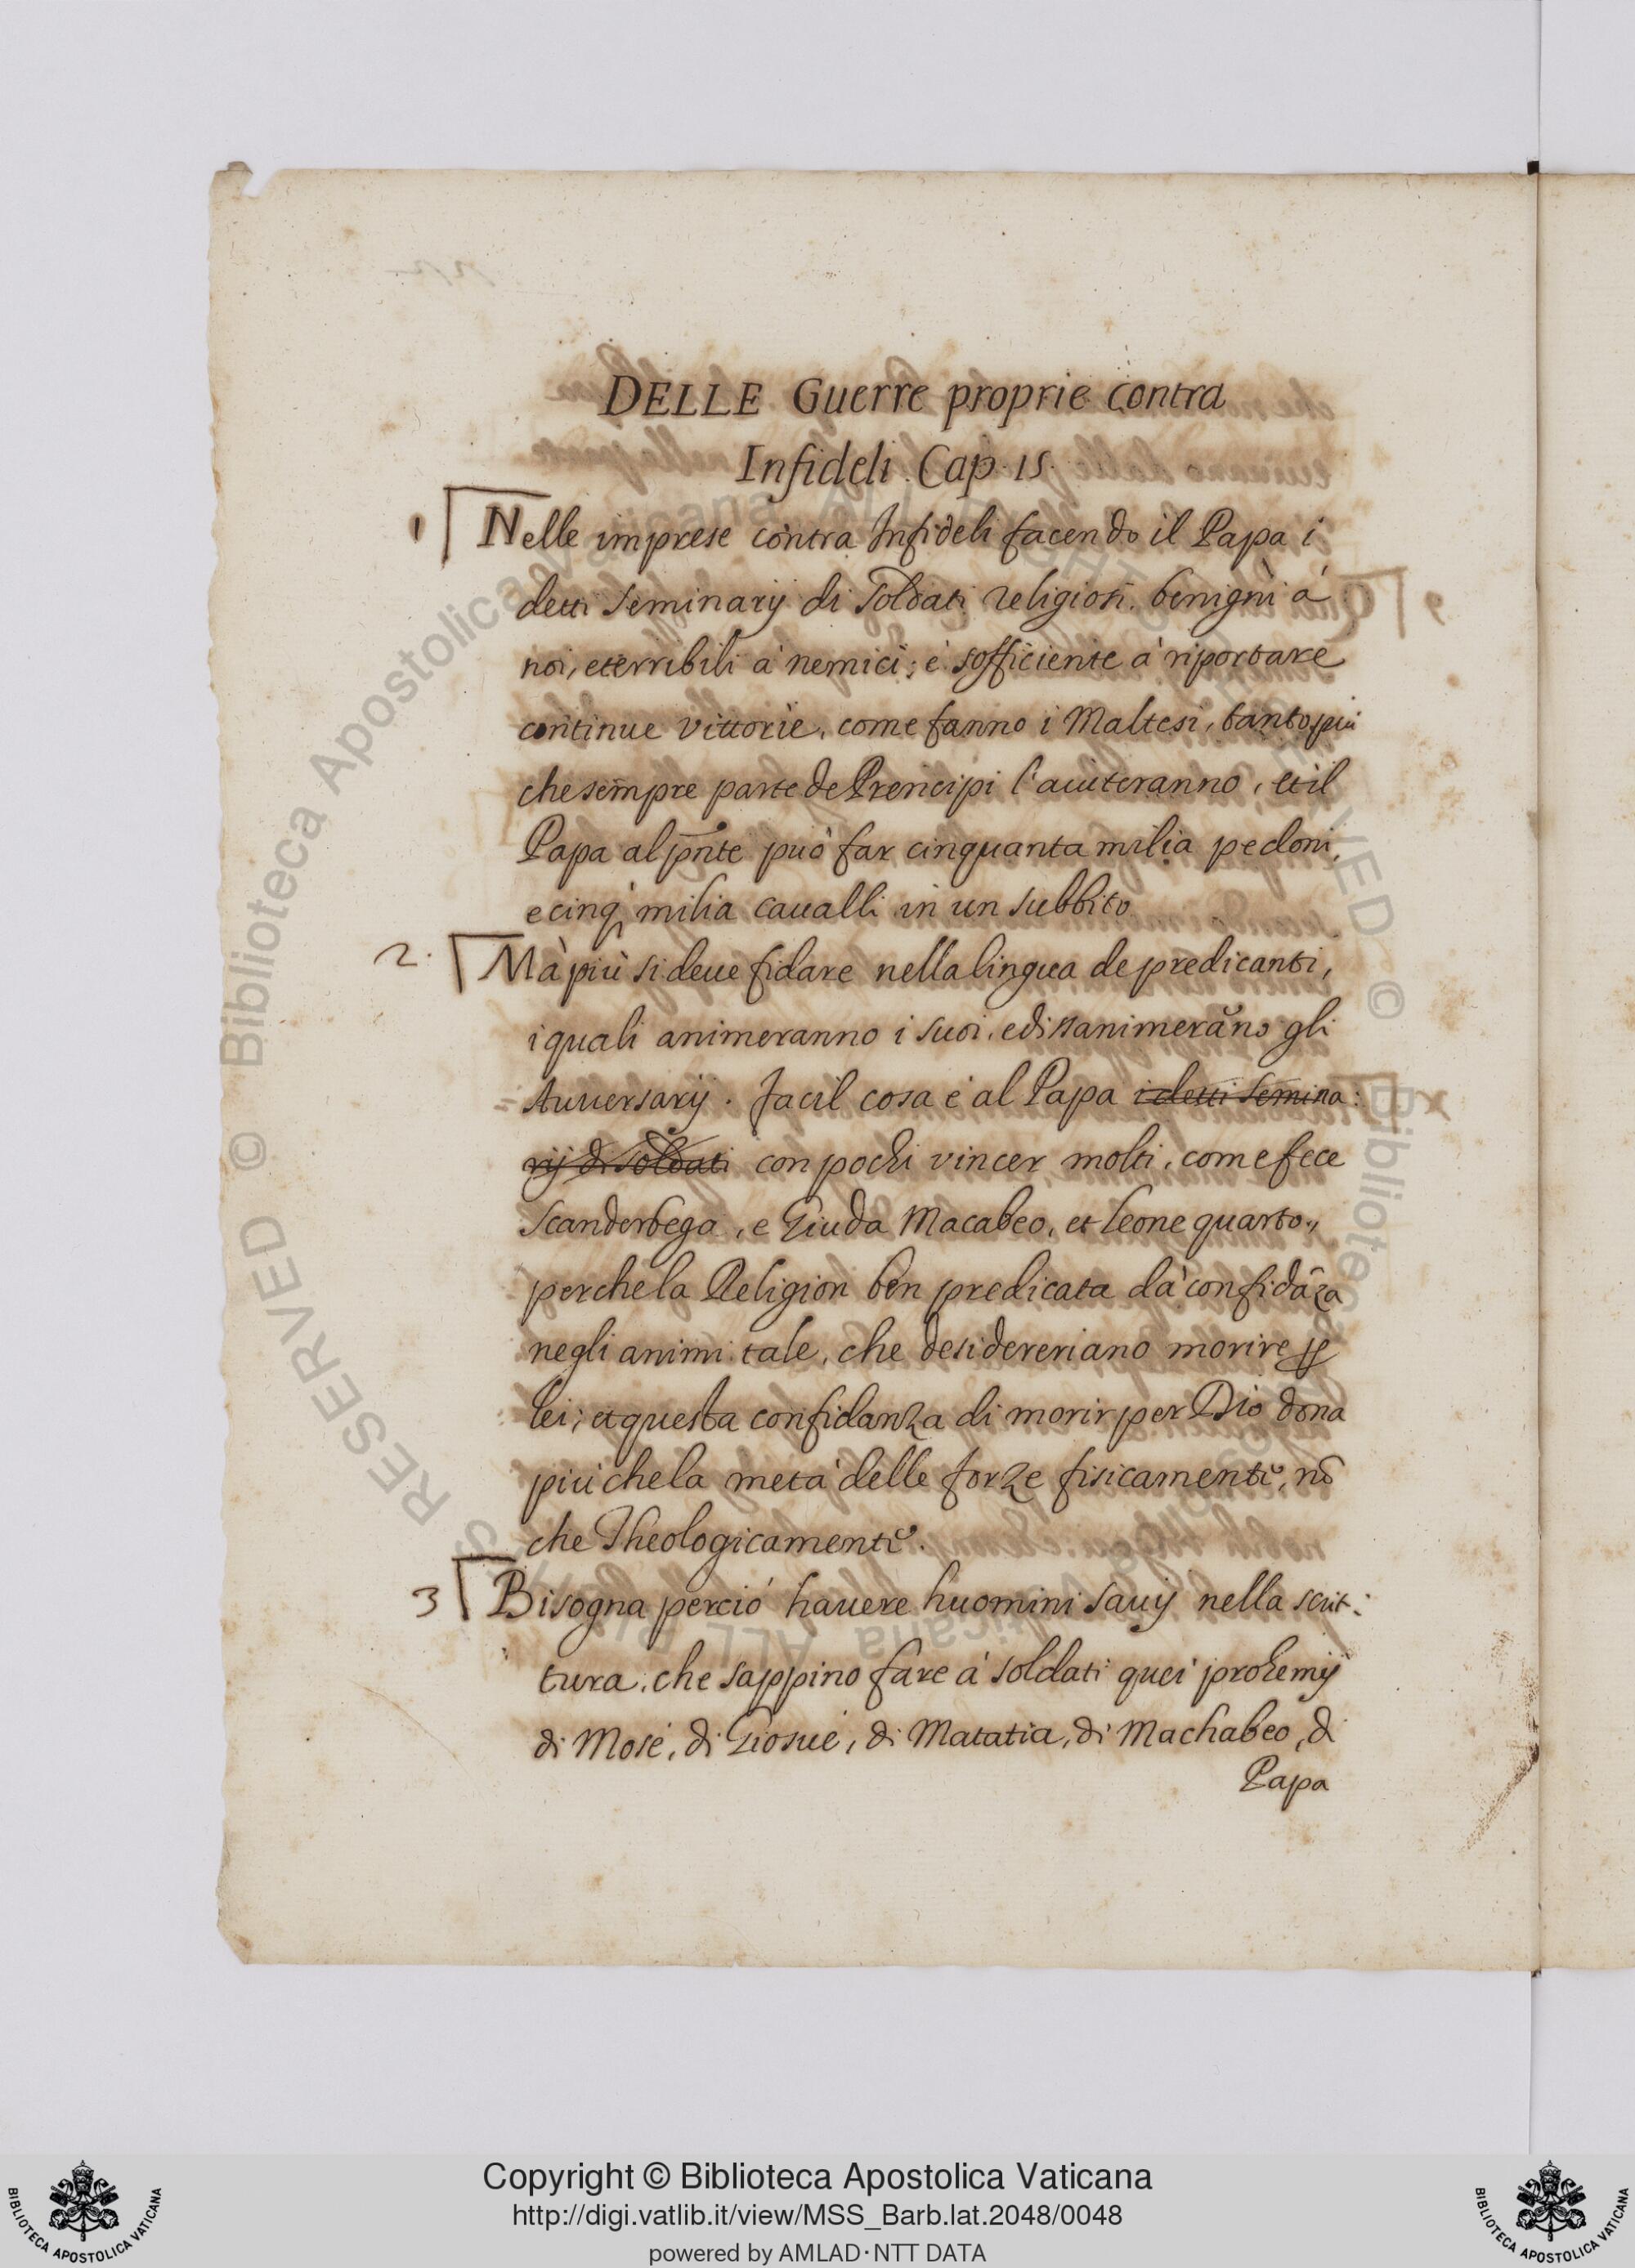 DELLE Guerre proprie contra
Infideli. Cap. 15.
1 Nelle imprese contra Infideli facendo il Papa i
detti Seminarij di Soldati religiosi. benigni à
noi, eterribili à nemici; è sofficiente à riportare
continue vittorie, come fanno i Maltesi, tantopiù
chesempre parte de Prencipi l'aiuteranno, etil
Papa al pñte può far cinquanta milia pedoni,
e cinq. milia caualli in un subbito
2. Mà più si deue fidare nella lingua de predicanti,
i quali animeranno i suoi, edisanimerãno gli
Auuersarij. facil cosa è al Papa i detti Semina:
rij di Soldati con pochi vincer molti, come fece
Scanderbega, e Giuda Macabeo, et Leone quarto.,
perchela Religion ben predicata dà confidãza
negli animi tale, che desidereriano morire ꝑ
lei; et questa confidanza di morir per Dio dona
più chela metà delle forze fisicamente, nõ
che Theologicamente.
3 Bisogna perciò hauere huomini sauij nella scrit:
tura, che sappino fare à soldati quei prohemij
di Mosè, di Giosuè, di Matatia, di Machabeo, di
Papa
© Biblioteca Apostolica Vaticana ALL RIGHTS RESERVED
Copyright © Biblioteca Apostolica Vaticana
http://digi.vatlib.it/view/MSS_Barb.lat.2048/0048
powered by AMLAD·NTT DATA
BIBLIOTECA APOSTOLICA VATICANA
BIBLIOTECA APOSTOLICA VATICANA